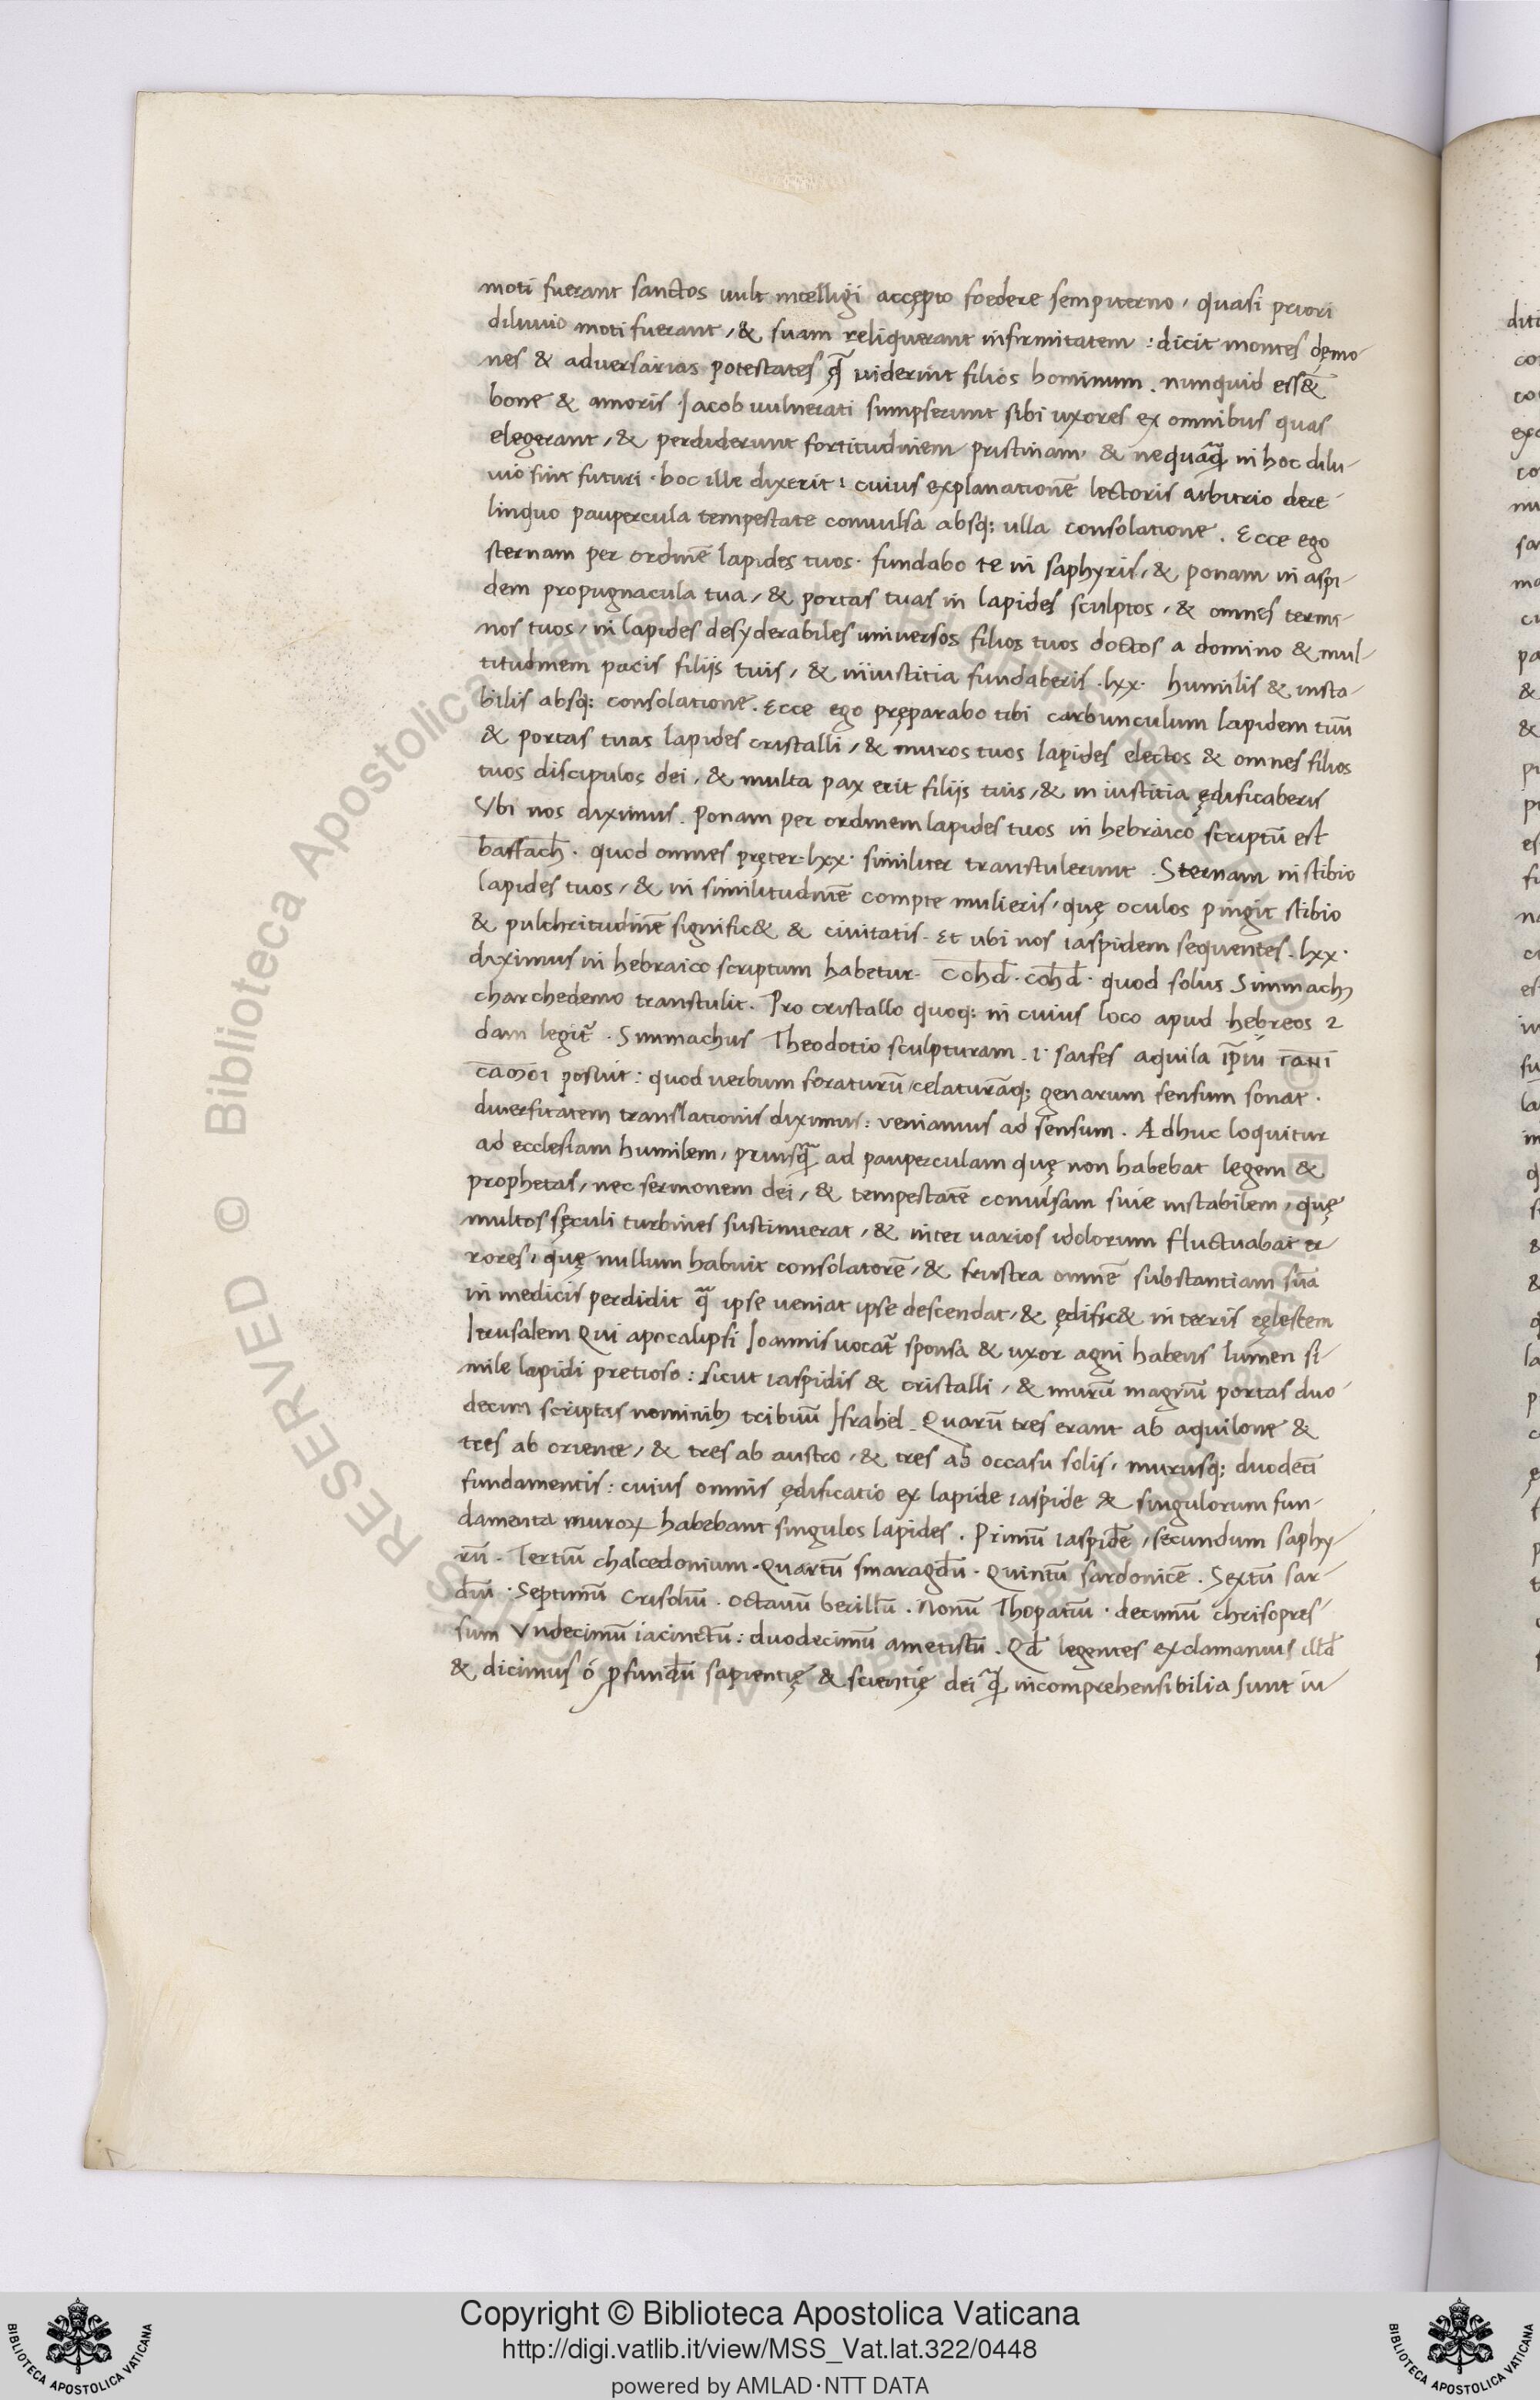 moti fuerant sanctos uult intelligi accępto foedere sempiterno, quasi priori
diluuio moti fuerant, & suam reliquerant infirmitatem: dicit montes dęmo
nes & adversarias potestates q̃ uiderint filios hominum. nunquid ess&
bone & amoris Jacob uulnerati sumpserunt sibi uxores ex omnibus quas
elegerant, & perdiderunt fortitudinem pristinam & nequãq̃ in hoc dilu-
uio sint futuri. hoc ille dixerit: cuius explanationē lectoris arbitrio dere
linquo paupercula tempestate conuulsa absq; ulla consolatione. Ecce ego
sternam per ordinē lapides tuos. fundabo te in saphyris, & ponam in aspi-
dem propugnacula tua, & portas tuas in lapides sculptos, & omnes termi-
nos tuos, in lapides desyderabiles universos filios tuos doctos a domino & mul-
titudinem pacis filijs tuis, & iniustitia fundaberis .lxx. humilis & insta-
bilis absq; consolatione. Ecce ego pręparabo tibi carbunculum lapidem tuū
& portas tuas lapides cristalli, & muros tuos lapides electos & omnes filios
tuos discipulos dei, & multa pax erit filijs tuis, & in iustitia ędificaberis
Vbi nos diximus. Ponam per ordinem lapides tuos in hebraico scriptū est
baffach. quod omnes pręter .lxx. similiter transtulerunt. Sternam in stibio
lapides tuos, & in similitudinē compte mulieris, quę oculos pingit stibio
& pulchritudinē signific& & ciuitatis. Et ubi nos iaspidem sequentes .lxx.
diximus in hebraico scriptum habetur. cohd. cohd. quod solus Simmach
charchedemo transtulit. Pro cristallo quoq; in cuius loco apud hebreos 2
dam legit̃. Simmachus Theodotio sculpturam .i. saises aquila ip̄iū
posuit: quod uerbum foraturū, celaturāq; genarum sensum sonat.
diuersitatem translationis diximus: veniamus ad sensum. Adhuc loquitur
ad ecclesiam humilem, priusq̃ ad pauperculam quę non habebat legem &
prophetas, nec sermonem dei, & tempestatē conuulsam siue instabilem, quę
multos sęculi turbines sustinuerat, & inter uarios idolorum fluctuabat er
rores, quę nullum habuit consolatorē, & frustra omnē substantiam suā
in medicis perdidit q̃ ipse ueniat ipse descendat, & ędific& in terris cęlestem
Jerusalem Qui apocalipsi Joannis uocat̃ sponsa & uxor agni habens lumen si
mile lapidi pretioso: sicut iaspidis & cristalli, & murū magnū portas duo
decim scriptas nominib; tribuū Israhel. Quarū tres erant ab aquilone &
tres ab oriente, & tres ab austro, & tres ab occasu solis, murusq; duodeci
fundamentis: cuius omnis ędificatio ex lapide iaspide & singulorum fun-
damenta muroꝝ habebant singulos lapides. Primū iaspidē, secundum saphy
rū. Tertiū chalcedonium. Quartū smaragdū. Quintū sardonicē. Sextū sar
diū. Septimū Crisoliū. Octauū berillū. Nonū Thopatiū. decimū chrisopres
sum Vndecimū iacinctū: duodecimū ametistū. Qd̄ legentes exclamamus illd̄
& dicimus ó ꝓfundū sapientię & scientię dei q̃ incomprehensibilia sunt iu
Copyright © Biblioteca Apostolica Vaticana
http://digi.vatlib.it/view/MSS_Vat.lat.322/0448
powered by AMLAD·NTT DATA